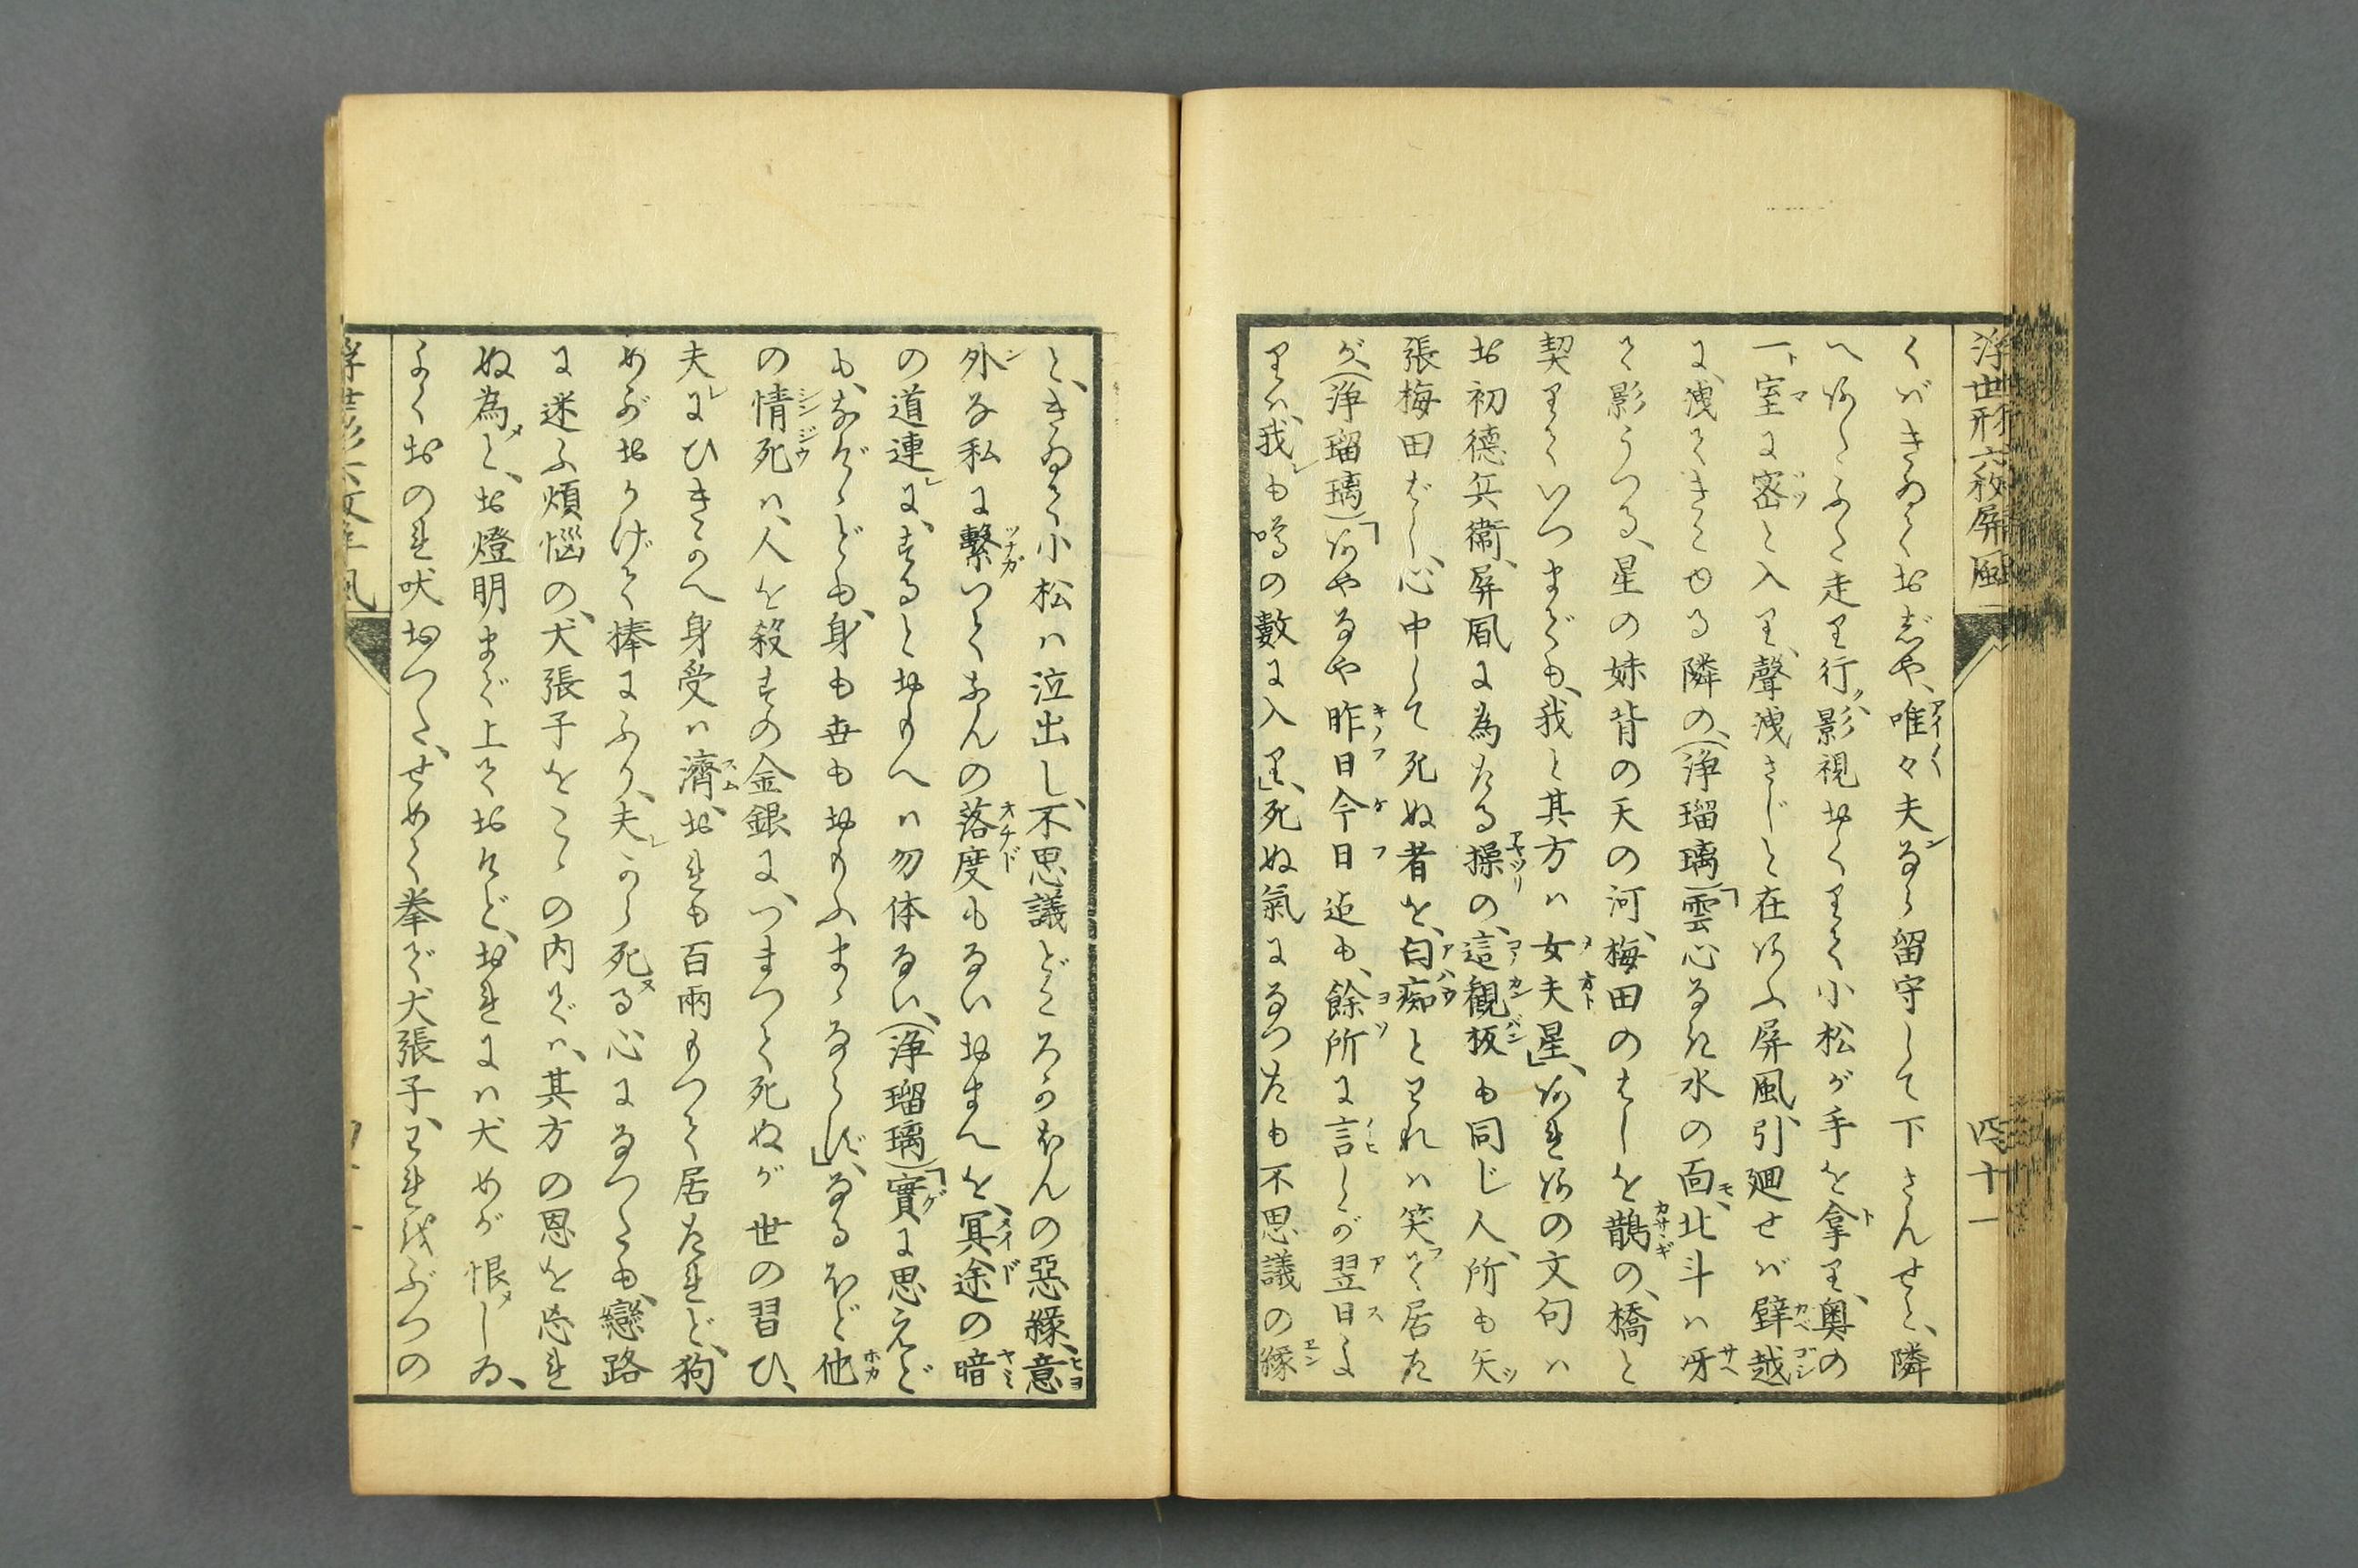 浮世形六枚屏風　四十一
くバきゐておぢや、唯々夫なら留守して下さんせと、隣
へあたふた走り行、影視おくりて小松が手を拿り、奥の
一室に密と入り、聲洩さじと在あふ屏風、引廻せバ壁越
に、洩てきこゆる隣の、(浄瑠璃)「雲心なき水の面、北斗ハ冴
て影うつる、星の妹背の天の河、梅田のはしを鵲の、橋と
契りていつまでも、我と其方ハ女夫星」、あれあの文句ハ
お初徳兵衛、屏風に為たる操の、這観板も同じ人、所も矢
張梅田ばし、心中して死ぬ者を、白痴とわれハ笑て居た
が、(浄瑠璃)「あやなや昨日今日迄も、餘所に言しが翌日よ
りハ、我も噂の數に入り」、死ぬ氣になつたも不思議の縁
と、きゐて小松ハ泣出し、不思議どころかほんの惡縁、意
外な私に繋つてなんの落度もないおまへを、冥途の暗
の道連に、するとおもへハ勿体ない、(浄瑠璃)「實に思えど
も、なげゝども、身も世もおもふまゝならず」、なるほど他
の情死ハ、人を殺すの金銀に、つまつて死ぬが世の習ひ、
夫にひきかへ身受ハ濟、おれも百兩もつて居たれど、狗
めがおかげで棒にふり、夫から死る心になつたも、戀路
に迷ふ煩悩の、犬張子をこゝの内でハ、其方の恩を忘れ
ぬ為と、お燈明まで上ておけど、おれにハ犬めが恨しゐ、
よくおのれ吠おつた、せめて拳で犬張子、われをぶつの